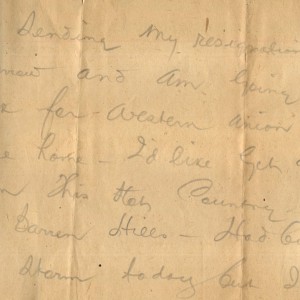 Sending My resignation
now and Am going
for - Western Union
home - I'd like get
This Hot Country
Barren Hills - Had
Storm today but I